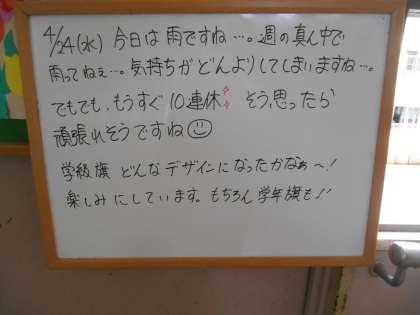 4/24(水) 今日は雨ですね…。週の真ん中で
雨ってねぇ…。気持ちがどんよりしてしまいますね…。
でもでも、もうすぐ10連休 そう思ったら
頑張れそうですね
学級旗 どんなデザインになったかなぁ〜!
楽しみにしています。もちろん学年旗も!!